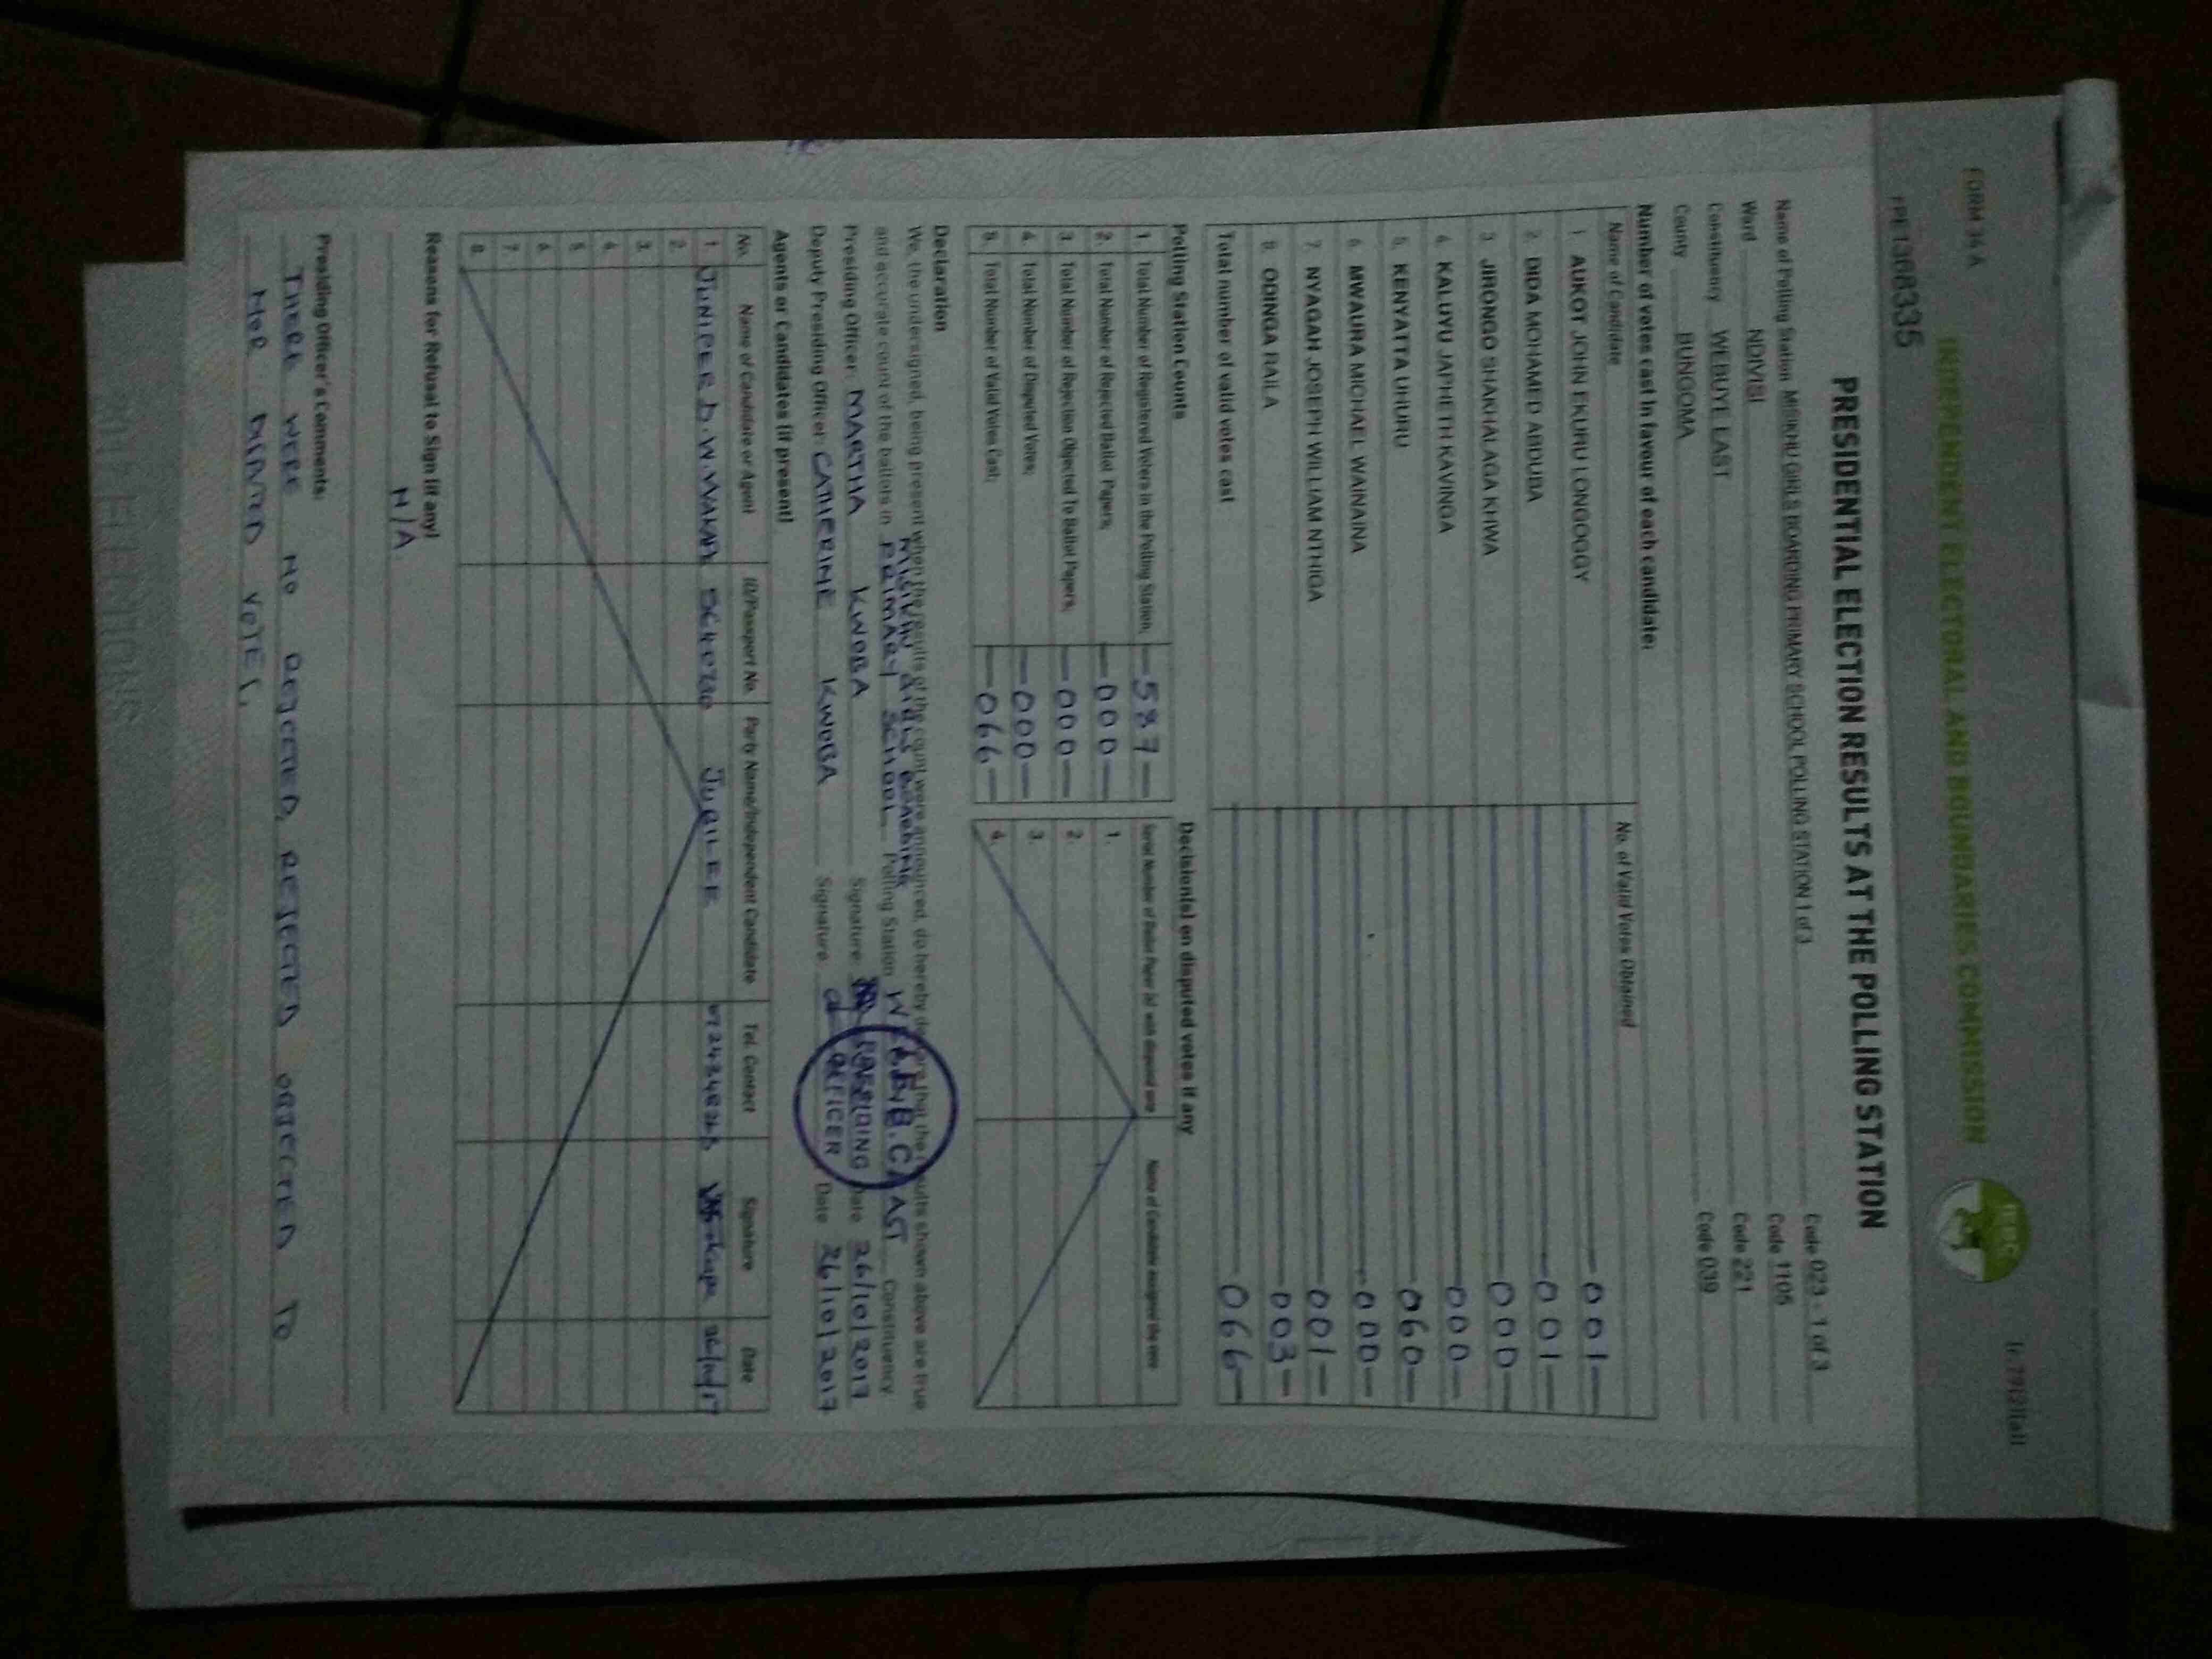 FORM 34A
INDEPENDENT ELECTORAL AND BOUNDARIES COMMISSION
IEBC
PRESIDENTIAL ELECTION RESULTS AT THE POLLING STATION
Name of Polling Station MISIKHU GIRLS BOARDING PRIMARY SCHOOL POLLING STATION 1 of 3 Code 023 - 1 of 3
Ward NDIVISI Code 1105
Constituency WEBUYE EAST Code 221
County BUNGOMA Code 039
Number of votes cast in favour of each candidate:
Name of Candidate No. of Valid Votes Obtained
1. AUKOT JOHN EKURU LONGOGGY 001
2. DIDA MOHAMED ABDUBA 001
3. JIRONGO SHAKHALAGA KHWA 000
4. KALUYU JAPHETH KAVINGA 000
5. KENYATTA UHURU 060
6. MWAURA MICHAEL WAINAINA 000
7. NYAGAH JOSEPH WILLIAM NTHIGA 001
8. ODINGA RAILA 003
Total number of valid votes cast 066
Polling Station Counts
1. Total Number of Registered Voters in the Polling Station; 587
2. Total Number of Rejected Ballot Papers; 000
3. Total Number of Rejection Objected To Ballot Papers; 000
4. Total Number of Disputed Votes; 000
5. Total Number of Valid Votes Cast; 066
Decision(s) on disputed votes if any
1.
2.
3.
4.
Declaration
We, the undersigned, being present when the results of the count were announced, do hereby declare that the results shown above are true
and accurate count of the ballots in PRIMARY SCHOOL Polling Station Constituency
Presiding Officer: MARTHA KWOBA Signature Date 26/10/2017
Deputy Presiding Officer: CATHERINE KWOBA Signature Date 26/10/2017
PRESIDING
OFFICER
Agents or Candidates (if present)
No. Name of Candidate or Agent ID/Passport No. Party Name/Independent Candidate Tel. Contact Signature Date
1. JUBILEE 26/10/17
2.
3.
4.
5.
6.
7.
8.
Reasons for Refusal to Sign (if any)
N/A
Presiding Officer's Comments:
THERE WERE NO REJECTED, REJECTED OBJECTED TO
NOR DISPUTED VOTES.